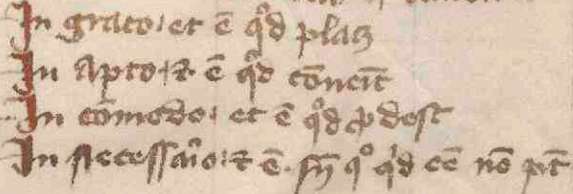 In grato. et ē qd placz
In apto. ⁊ ē qd cōuēit
In cōmodo. et ē qd ꝓdest
In necessaʳio. ⁊ ē. sn̄ qº qd eē nō pt̄